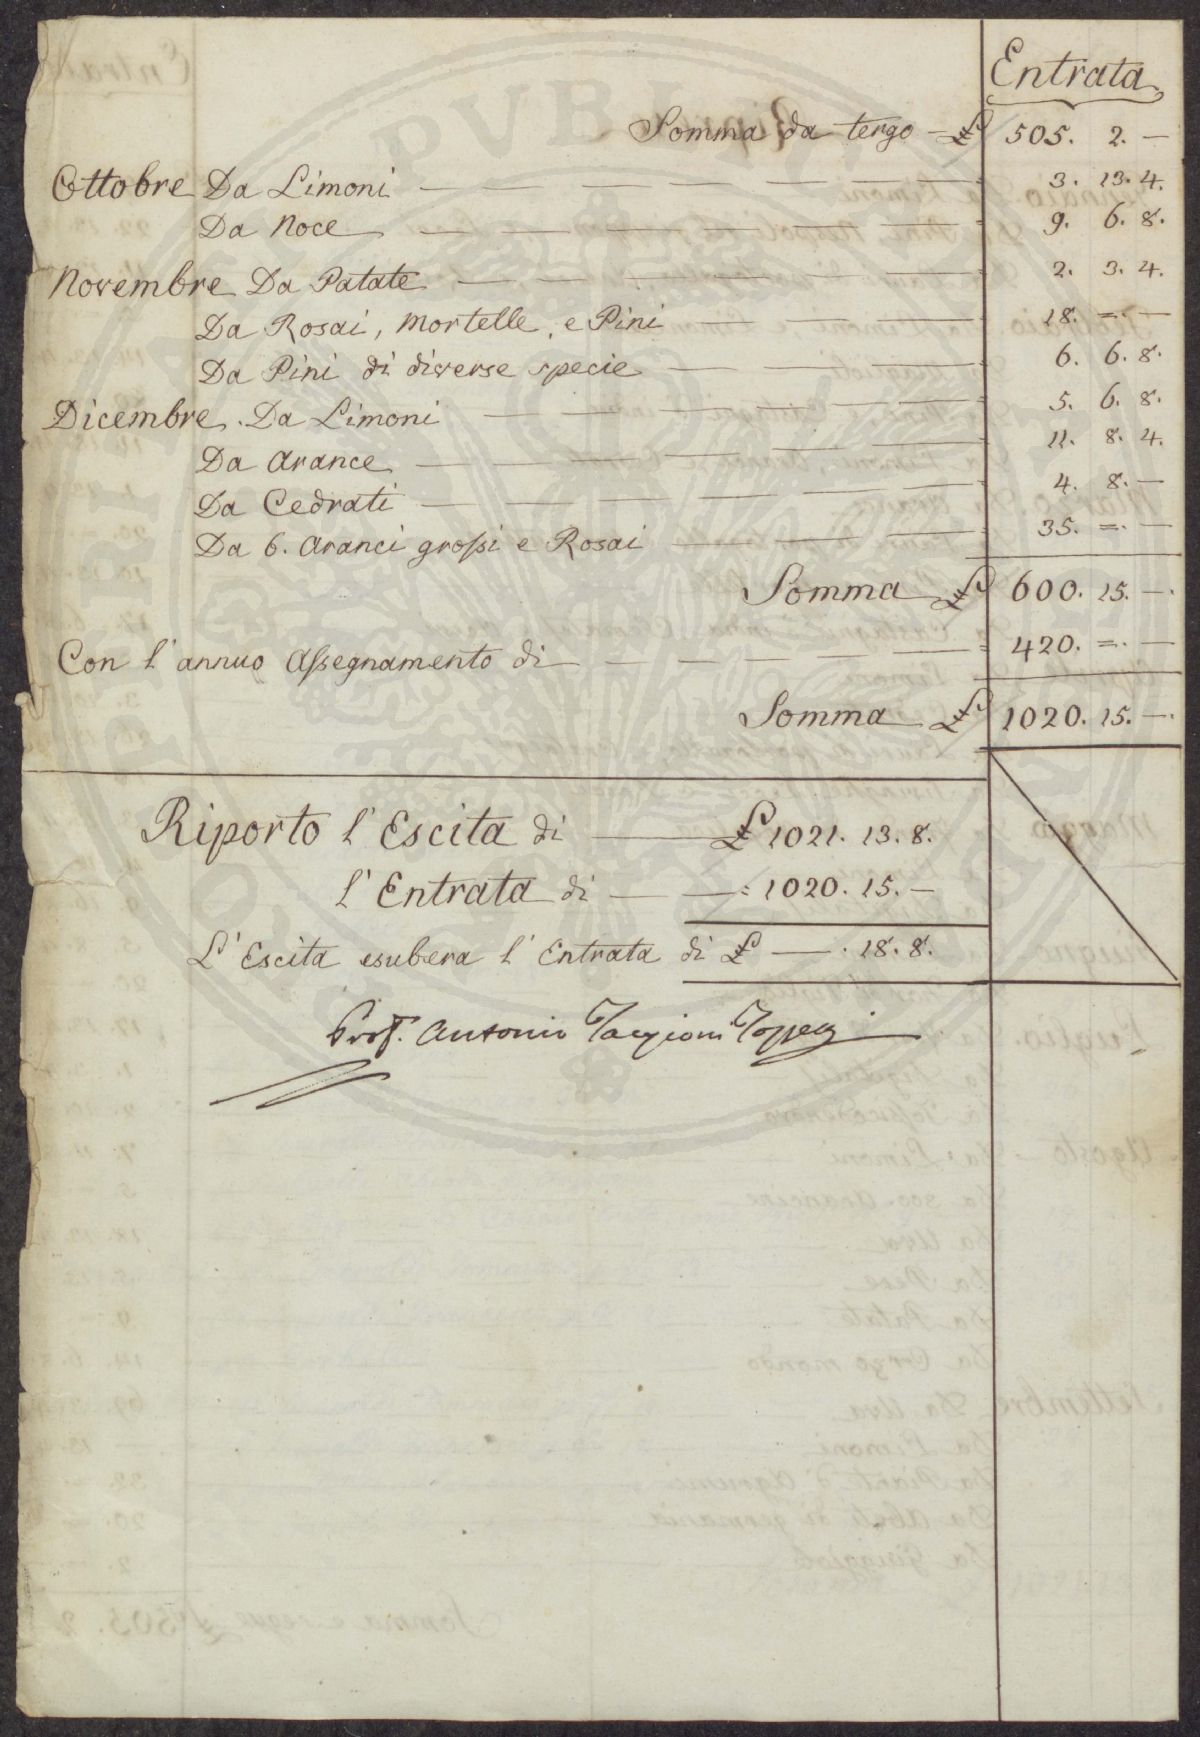 Entrata
Somma da tergo — £ 505. 2. —
Ottobre Da Limoni — 3. 13. 4.
Da Noce — 9. 6. 8.
Novembre Da Patate — 2. 3. 4.
Da Rosai, Mortelle, e Pini — 18. = —
Da Pini di diverse specie — 6. 6. 8.
Dicembre. Da Limoni — 5. 6. 8.
Da Arance — 11. 8. 4.
Da Cedrati — 4. 8. —
Da 6. Aranci grossi e Rosai — 35. = —
Somma £ 600. 15. —
Con l'annuo Assegnamento di — 420. = —
Somma £ 1020. 15. —
Riporto l'Escita di — £ 1021. 13. 8.
l'Entrata di — = 1020. 15. —
L'Escita esubera l'Entrata di £ — . 18. 8.
Prof. Antonio Targioni Tozzetti